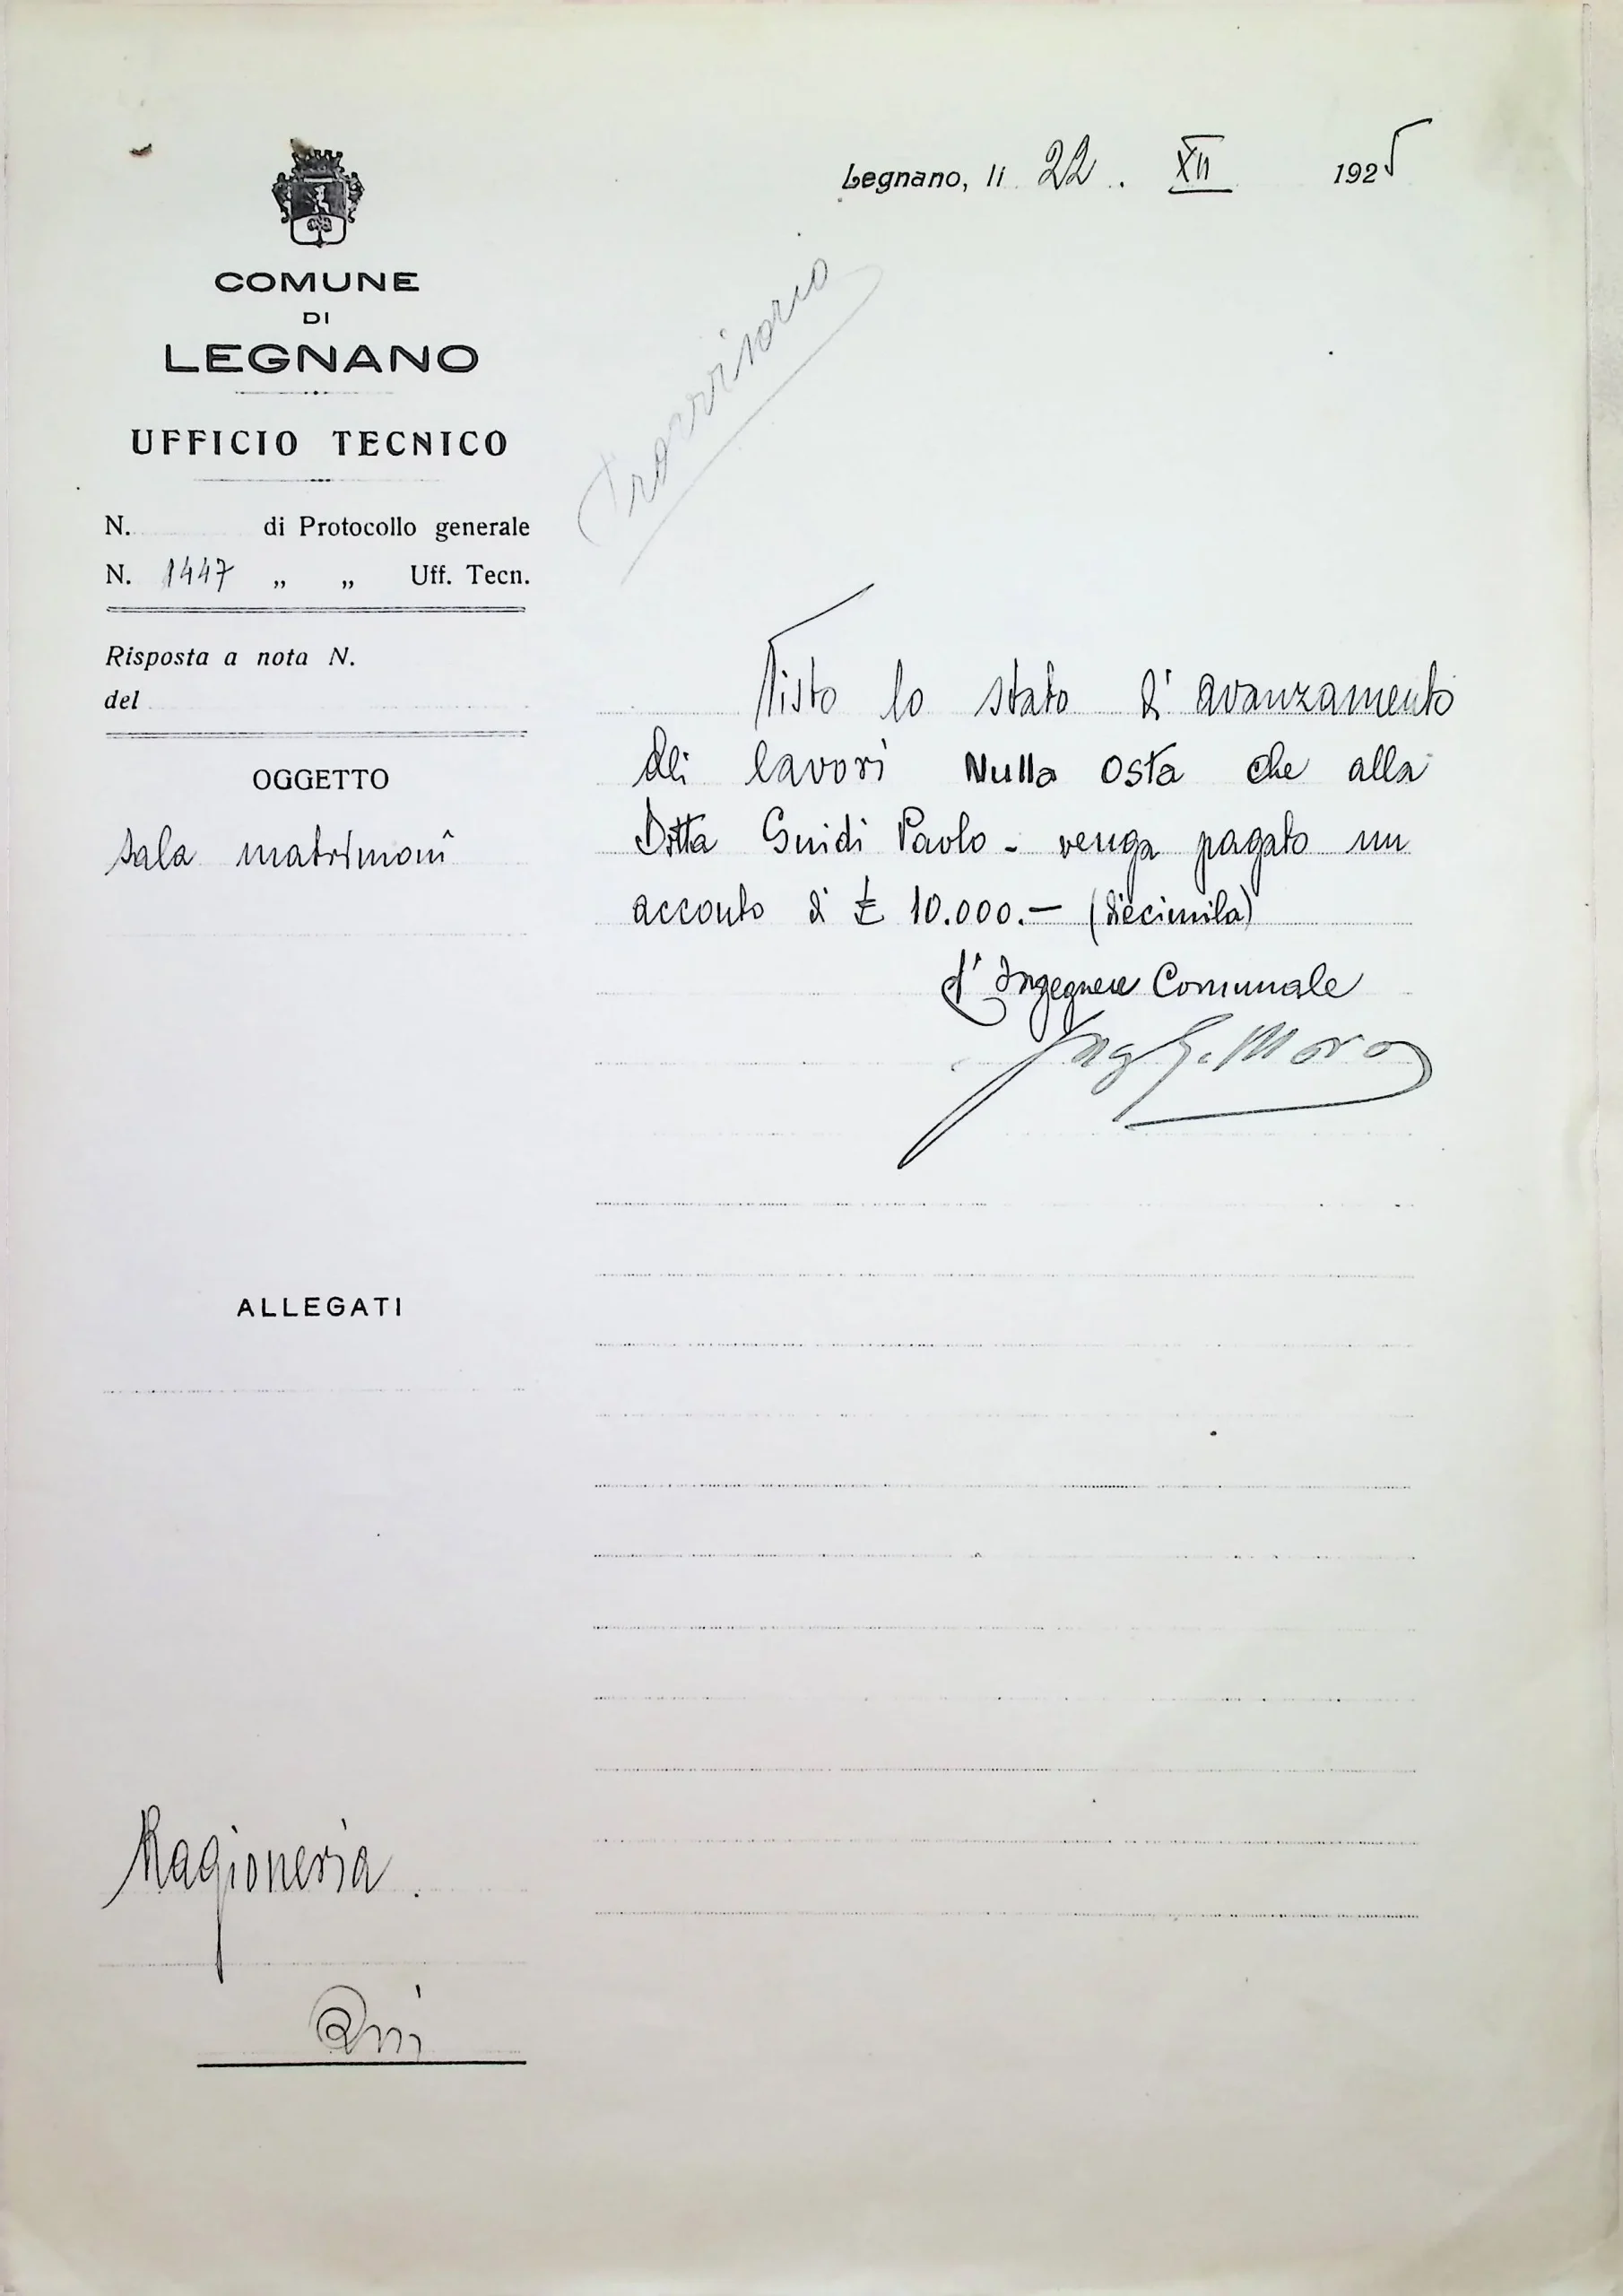 Legnano, li 22. XII 1925
COMUNE
DI
LEGNANO
UFFICIO TECNICO
N. di Protocollo generale
N. 1447 „ „ Uff. Tecn.
Risposta a nota N.
del
OGGETTO
sala matrimonî
Provvisorio
Visto lo stato d'avanzamento
dei lavori Nulla osta che alla
Ditta Guidi Paolo - venga pagato un
acconto di £ 10.000.— (diecimila)
L'Ingegnere Comunale
Ing G. Moro
ALLEGATI
Ragioneria.
Qui